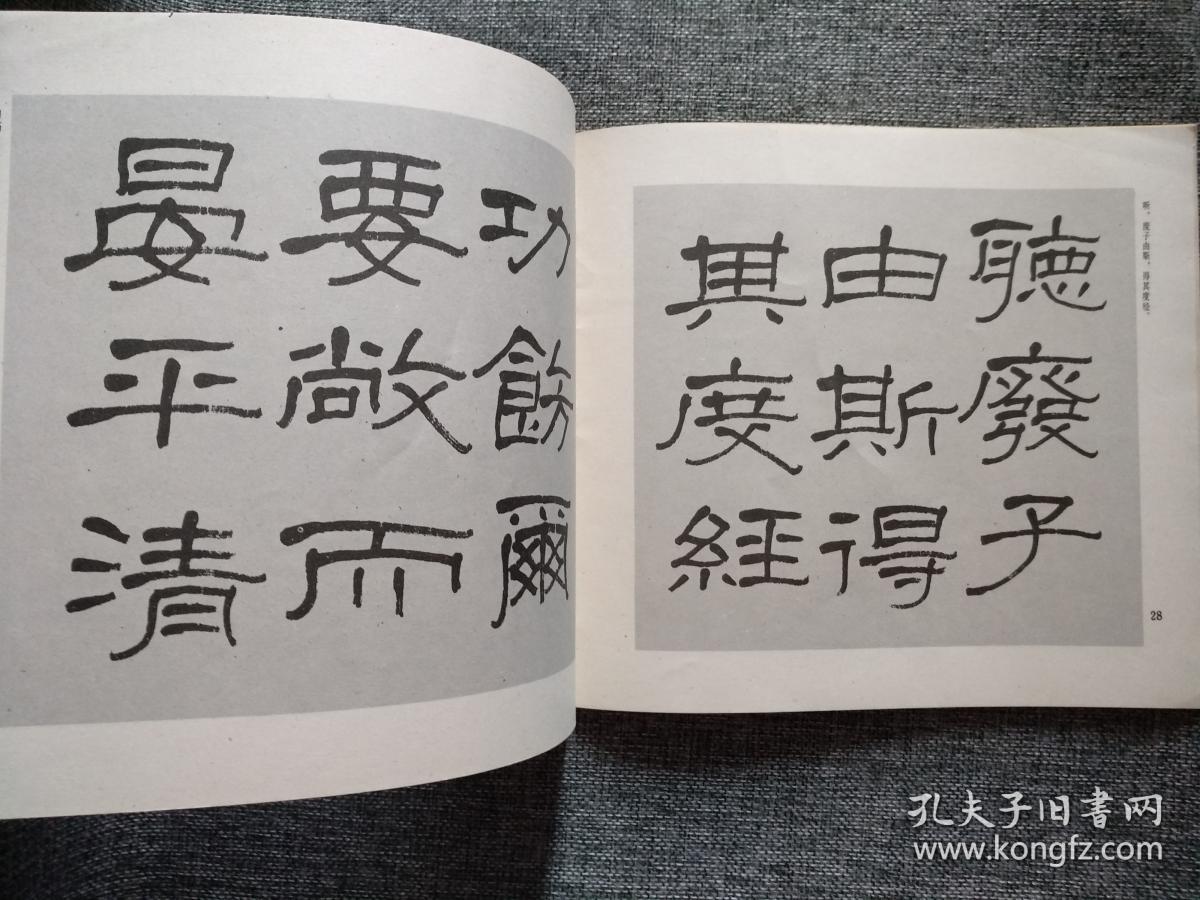 听，废子由斯，得其度经。
聽廢子
由斯得
其度經
28
功飭爾
要敞而
晏平清
孔夫子旧書网
www.kongfz.com